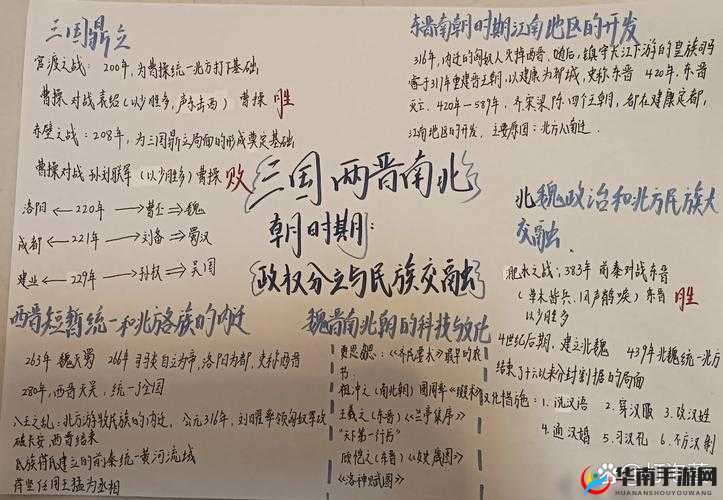 三国鼎立
官渡之战：200年，为曹操统一北方打下基础
曹操对战袁绍（以少胜多，声东击西）曹操 胜
赤壁之战：208年，为三国鼎立局面的形成奠定基础
曹操对战孙刘联军（以少胜多）曹操 败
洛阳 ← 220年 → 曹丕 ⇒ 魏
成都 ← 221年 → 刘备 ⇒ 蜀汉
建业 ← 229年 → 孙权 ⇒ 吴国
东晋南朝时期江南地区的开发
316年，内迁的匈奴人灭掉西晋。随后，镇守长江下游的皇族司马
睿于317年重建晋王朝，以建康为都城，史称东晋 420年，东晋
灭亡。420年—589年，齐宋梁陈，四个王朝，都在建康定都，
江南地区的开发。主要原因：北方人南迁。
三国两晋南北
朝时期：
政权分立与民族交融
北魏政治和北方民族大
交融
淝水之战：383年 前秦对战东晋
（草木皆兵、风声鹤唳）东晋 胜
以少胜多
4世纪后期，建立北魏 439年北魏统一北方
结束了十六以来分封割据的局面
汉化措施：1.说汉语 2.穿汉服 3.改汉姓
4.通汉婚 5.习汉礼 6.
西晋短暂统一和北方各族的内迁
263年 魏灭蜀 266年 司马炎自立为帝，洛阳为都，史称西晋
280年，西晋灭吴，统一了全国
八王之乱：北方游牧民族的内迁，公元316年，刘曜率领匈奴军攻
破长安 西晋结束
氐族符氏建立的前秦统一黄河流域
苻坚任用王猛为丞相
魏晋南北朝的科技与文化
贾思勰：《齐民要术》最早的农
书.
祖冲之（南北朝）圆周率
王羲之（东晋）《兰亭集序》
“天下第一行书”
顾恺之（东晋）《女史箴图》
《洛神赋图》
华南手游网
HUANANSHOUYOUWANG